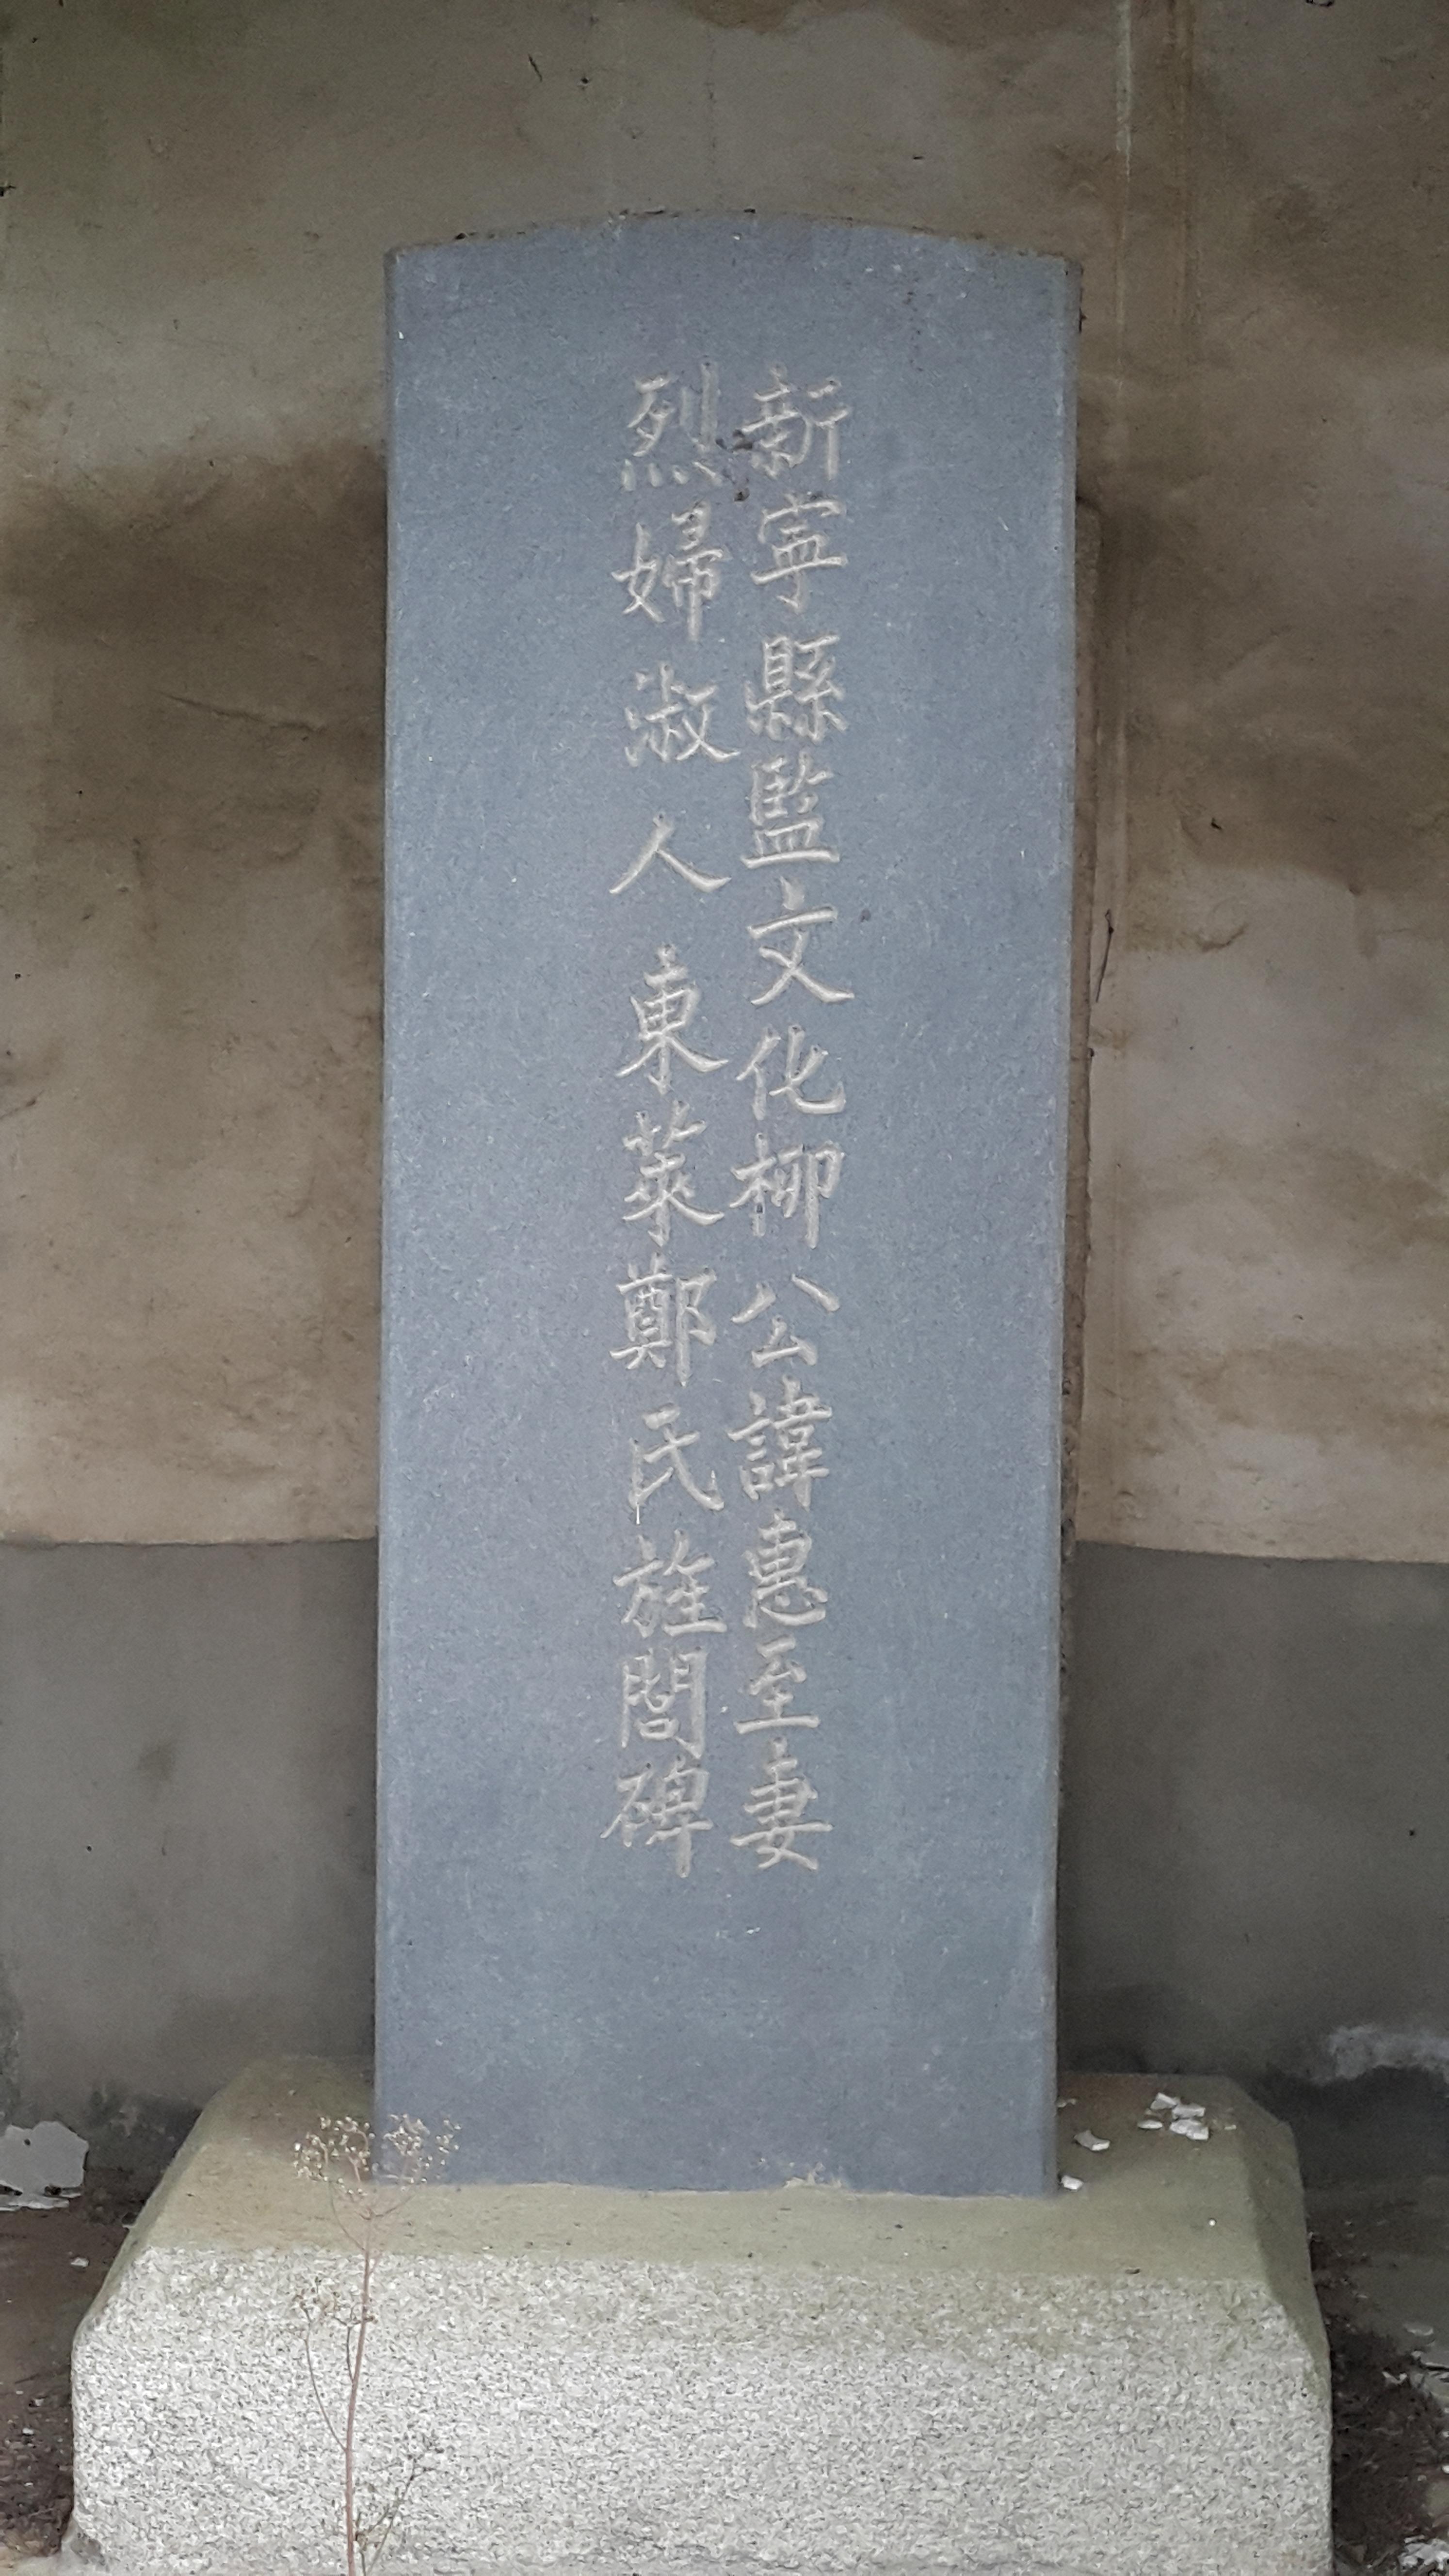 新寧縣監文化柳公諱惠至妻
烈婦淑人東萊鄭氏旌閭碑